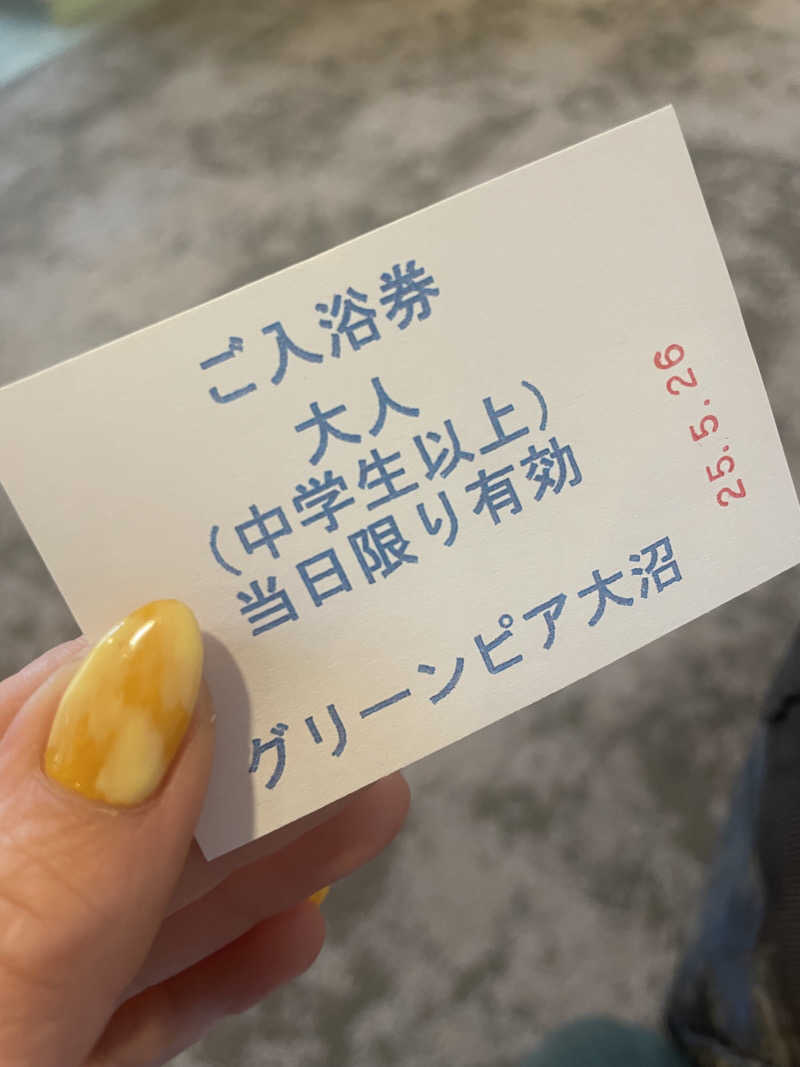 ご入浴券
大人
（中学生以上）
当日限り有効
グリーンピア大沼
25.5.26